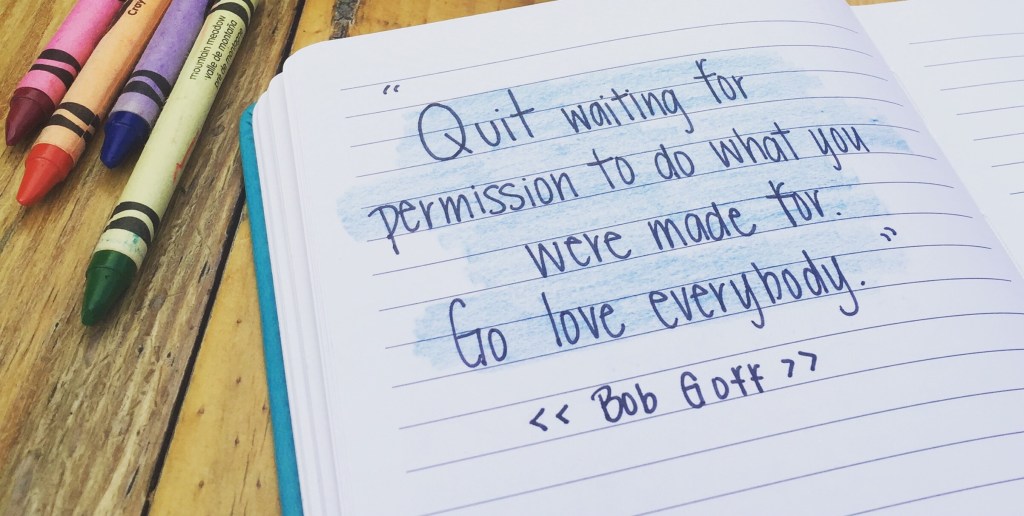 Cray
mountain meadow
valle de montaña
“ Quit waiting for
permission to do what you
were made for.
Go love everybody. ”
<< Bob Goff >>